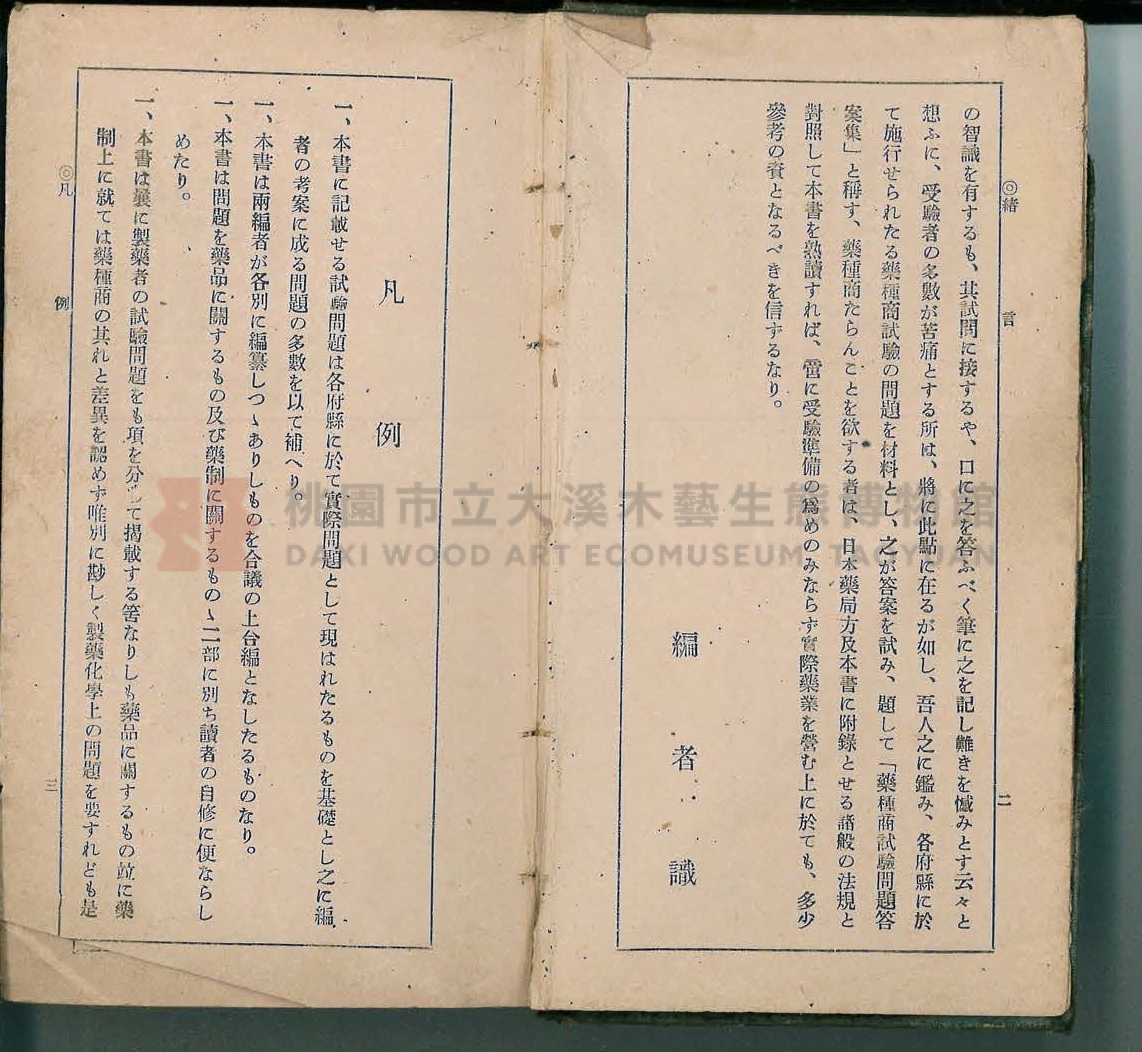 ◎緒言
二
の智識を有するも、其試問に接するや、口に之を答ふべく筆に之を記し難きを憾みとす云々と
想ふに、受驗者の多數が苦痛とする所は、將に此點に在るが如し、吾人之に鑑み、各府縣に於
て施行せられたる藥種商試驗の問題を材料とし、之が答案を試み、題して「藥種商試驗問題答
案集」と稱す、藥種商たらんことを欲する者は、日本藥局方及本書に附錄とせる諸般の法規と
對照して本書を熟讀すれば、啻に受驗準備の爲めのみならず實際藥業を營む上に於ても、多少
參考の資となるべきを信ずるなり。
編者識
凡例
一、本書に記載せる試驗問題は各府縣に於て實際問題として現はれたるものを基礎とし之に編
者の考案に成る問題の多數を以て補へり。
一、本書は兩編者が各別に編纂しつゝありしものを合議の上台編となしたるものなり。
一、本書は問題を藥品に關するもの及び藥制に關するものゝ二部に別ち讀者の自修に便ならし
めたり。
一、本書は曩に製藥者の試驗問題をも項を分つて揭載する筈なりしも藥品に關するもの竝に藥
制上に就ては藥種商の其れと差異を認めず唯別に尠しく製藥化學上の問題を要すれども是
◎凡例
三
桃園市立大溪木藝生態博物館
DAXI WOOD ART ECOMUSEUM, TAOYUAN